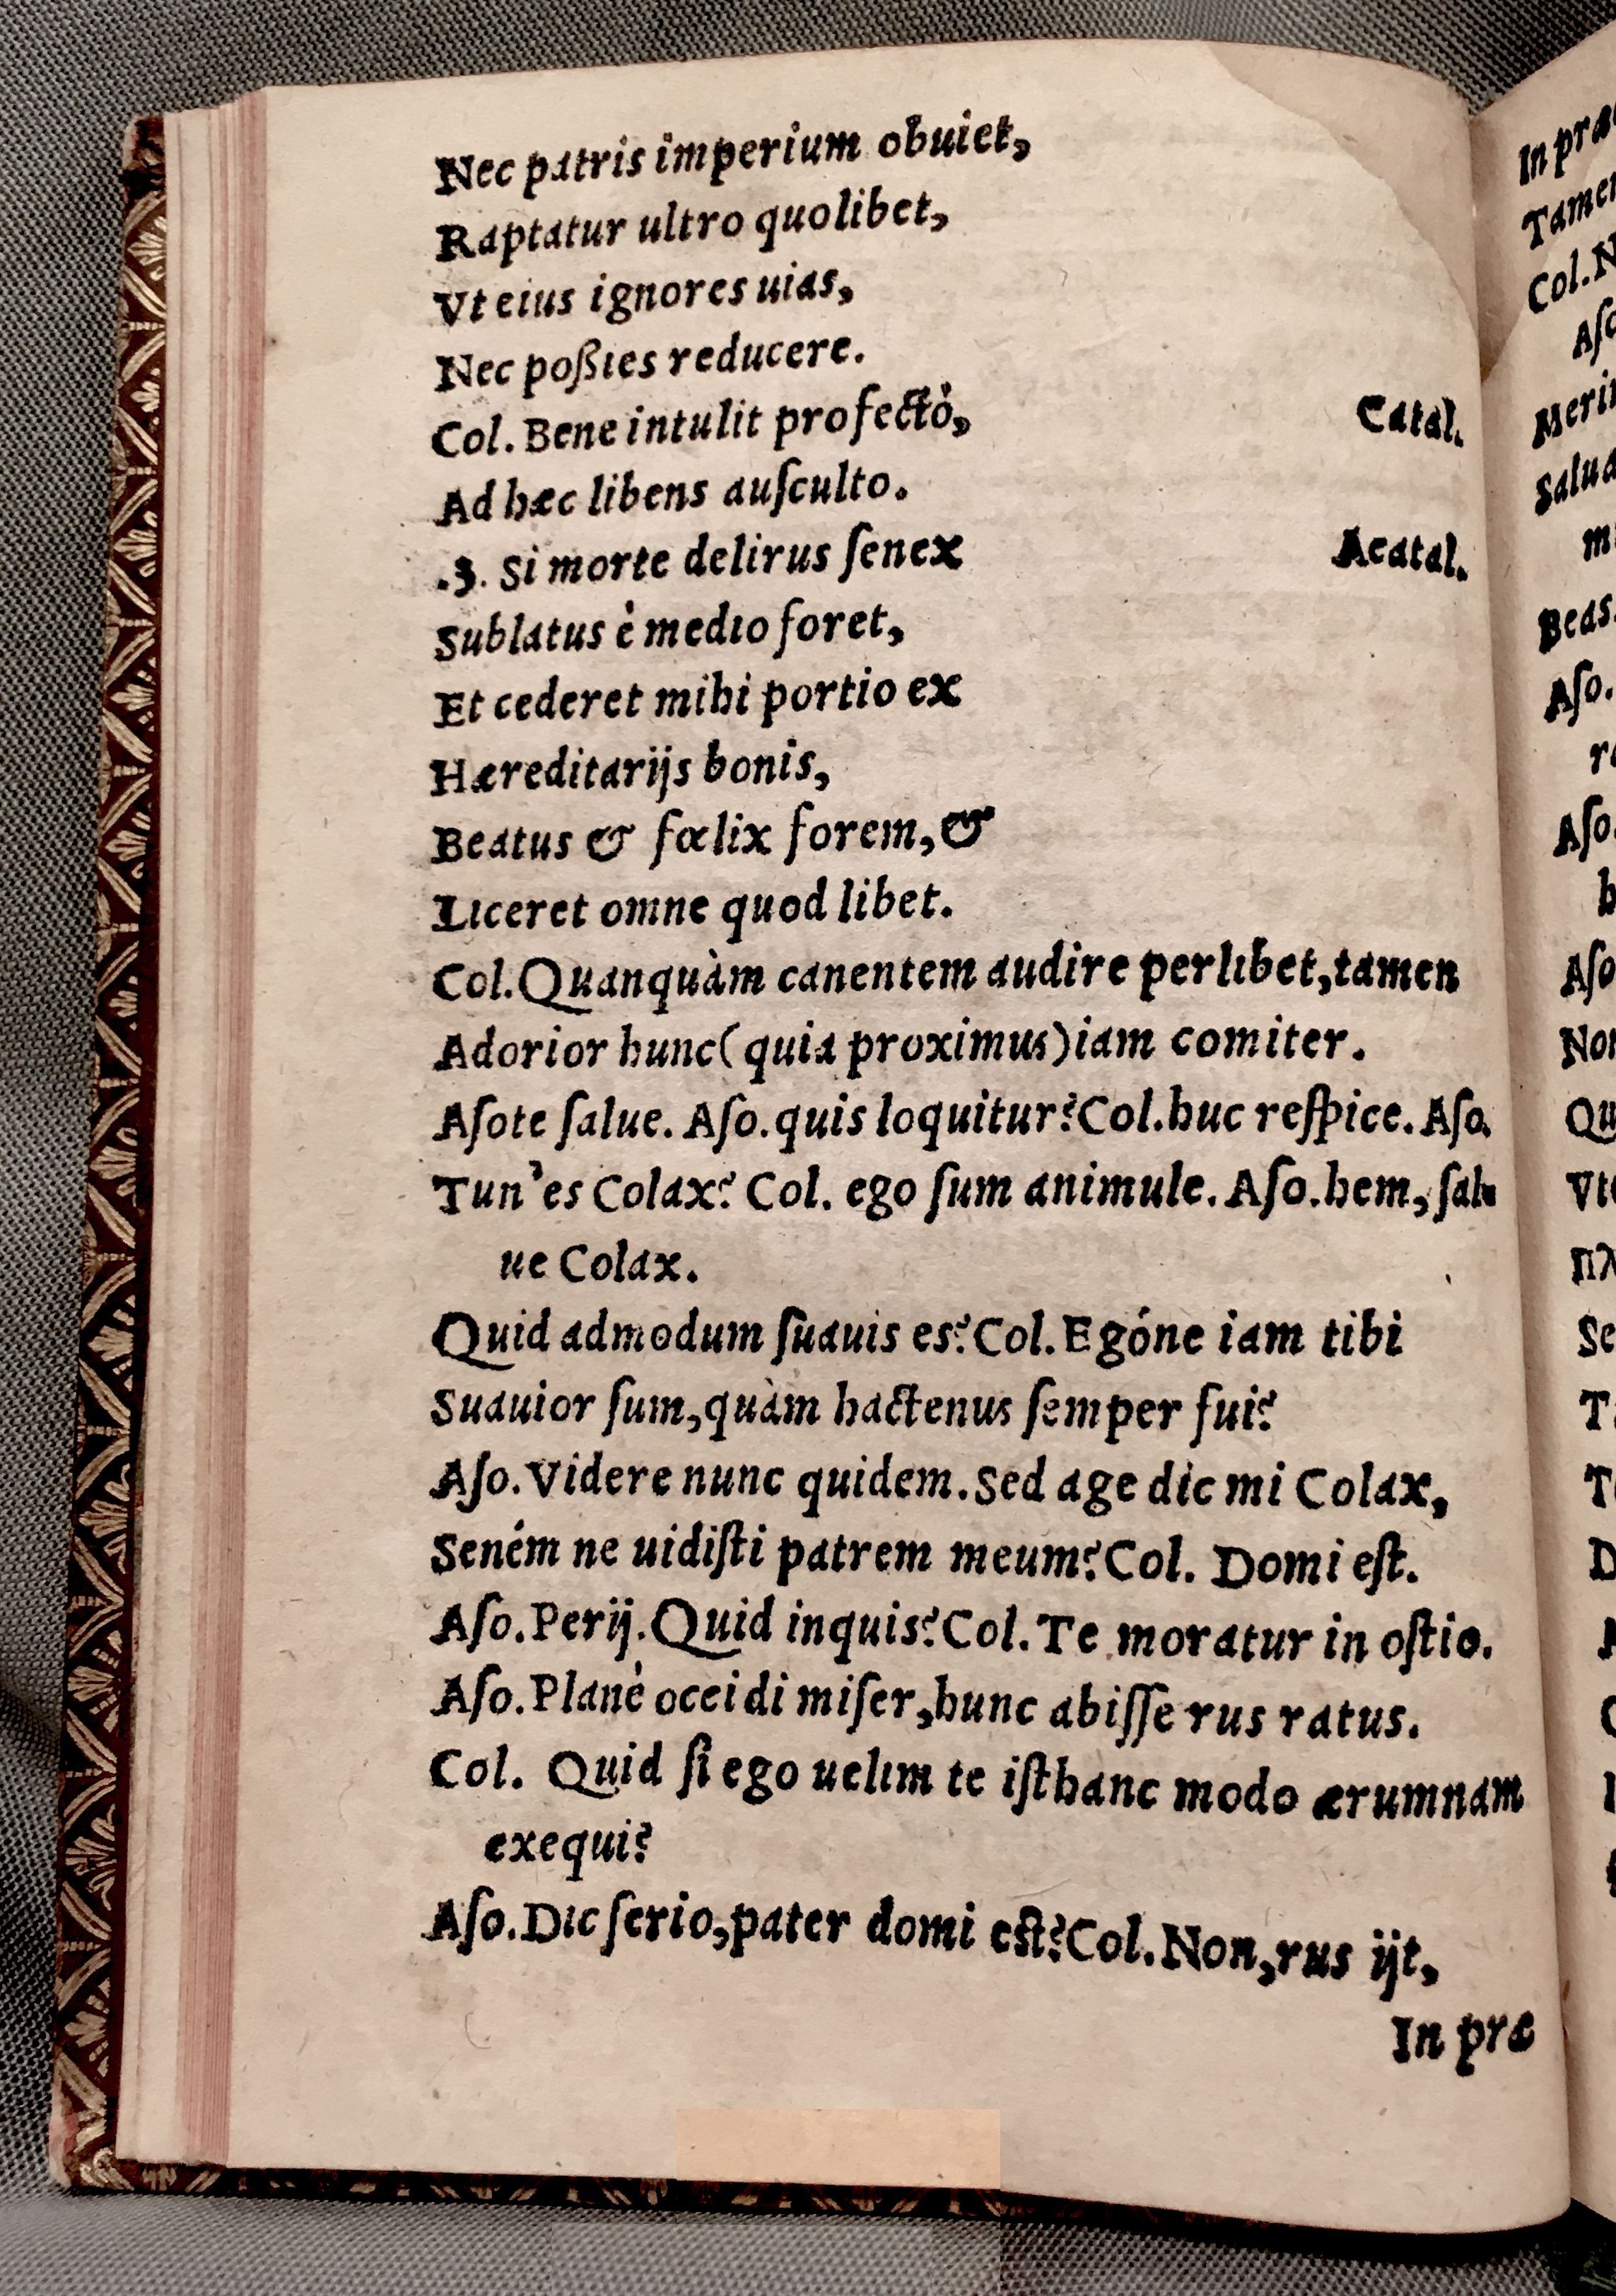 Nec patris imperium obuiet,
Raptatur ultro quolibet,
Vt eius ignores uias,
Nec poßies reducere.
Col. Bene intulit profectò, Catal.
Ad hæc libens auſculto.
.3. Si morte delirus ſenex Acatal.
Sublatus è medio foret,
Et cederet mihi portio ex
Hæreditarijs bonis,
Beatus & fœlix forem, &
Liceret omne quod libet.
Col. Quanquàm canentem audire perlibet, tamen
Adorior hunc (quia proximus) iam comiter.
Aſote ſalue. Aſo. quis loquitur? Col. huc reſpice. Aſo.
Tun' es Colax? Col. ego ſum animule. Aſo. hem, ſal
ue Colax.
Quid admodum ſuauis es? Col. Egóne iam tibi
Suauior ſum, quàm hactenus ſemper fui?
Aſo. Videre nunc quidem. Sed age dic mi Colax,
Seném ne uidiſti patrem meum? Col. Domi eſt.
Aſo. Perij. Quid inquis? Col. Te moratur in oſtio.
Aſo. Planè occidi miſer, hunc abiſſe rus ratus.
Col. Quid ſi ego uelim te iſthanc modo ærumnam
exequi?
Aſo. Dic ſerio, pater domi eſt? Col. Non, rus ijt,
In præ
In præ
Tamen
Col. N
Aſo
Merit
Salua
Beas.
Aſo.
Aſo.
Aſo
Non
Qu
Vt
Se